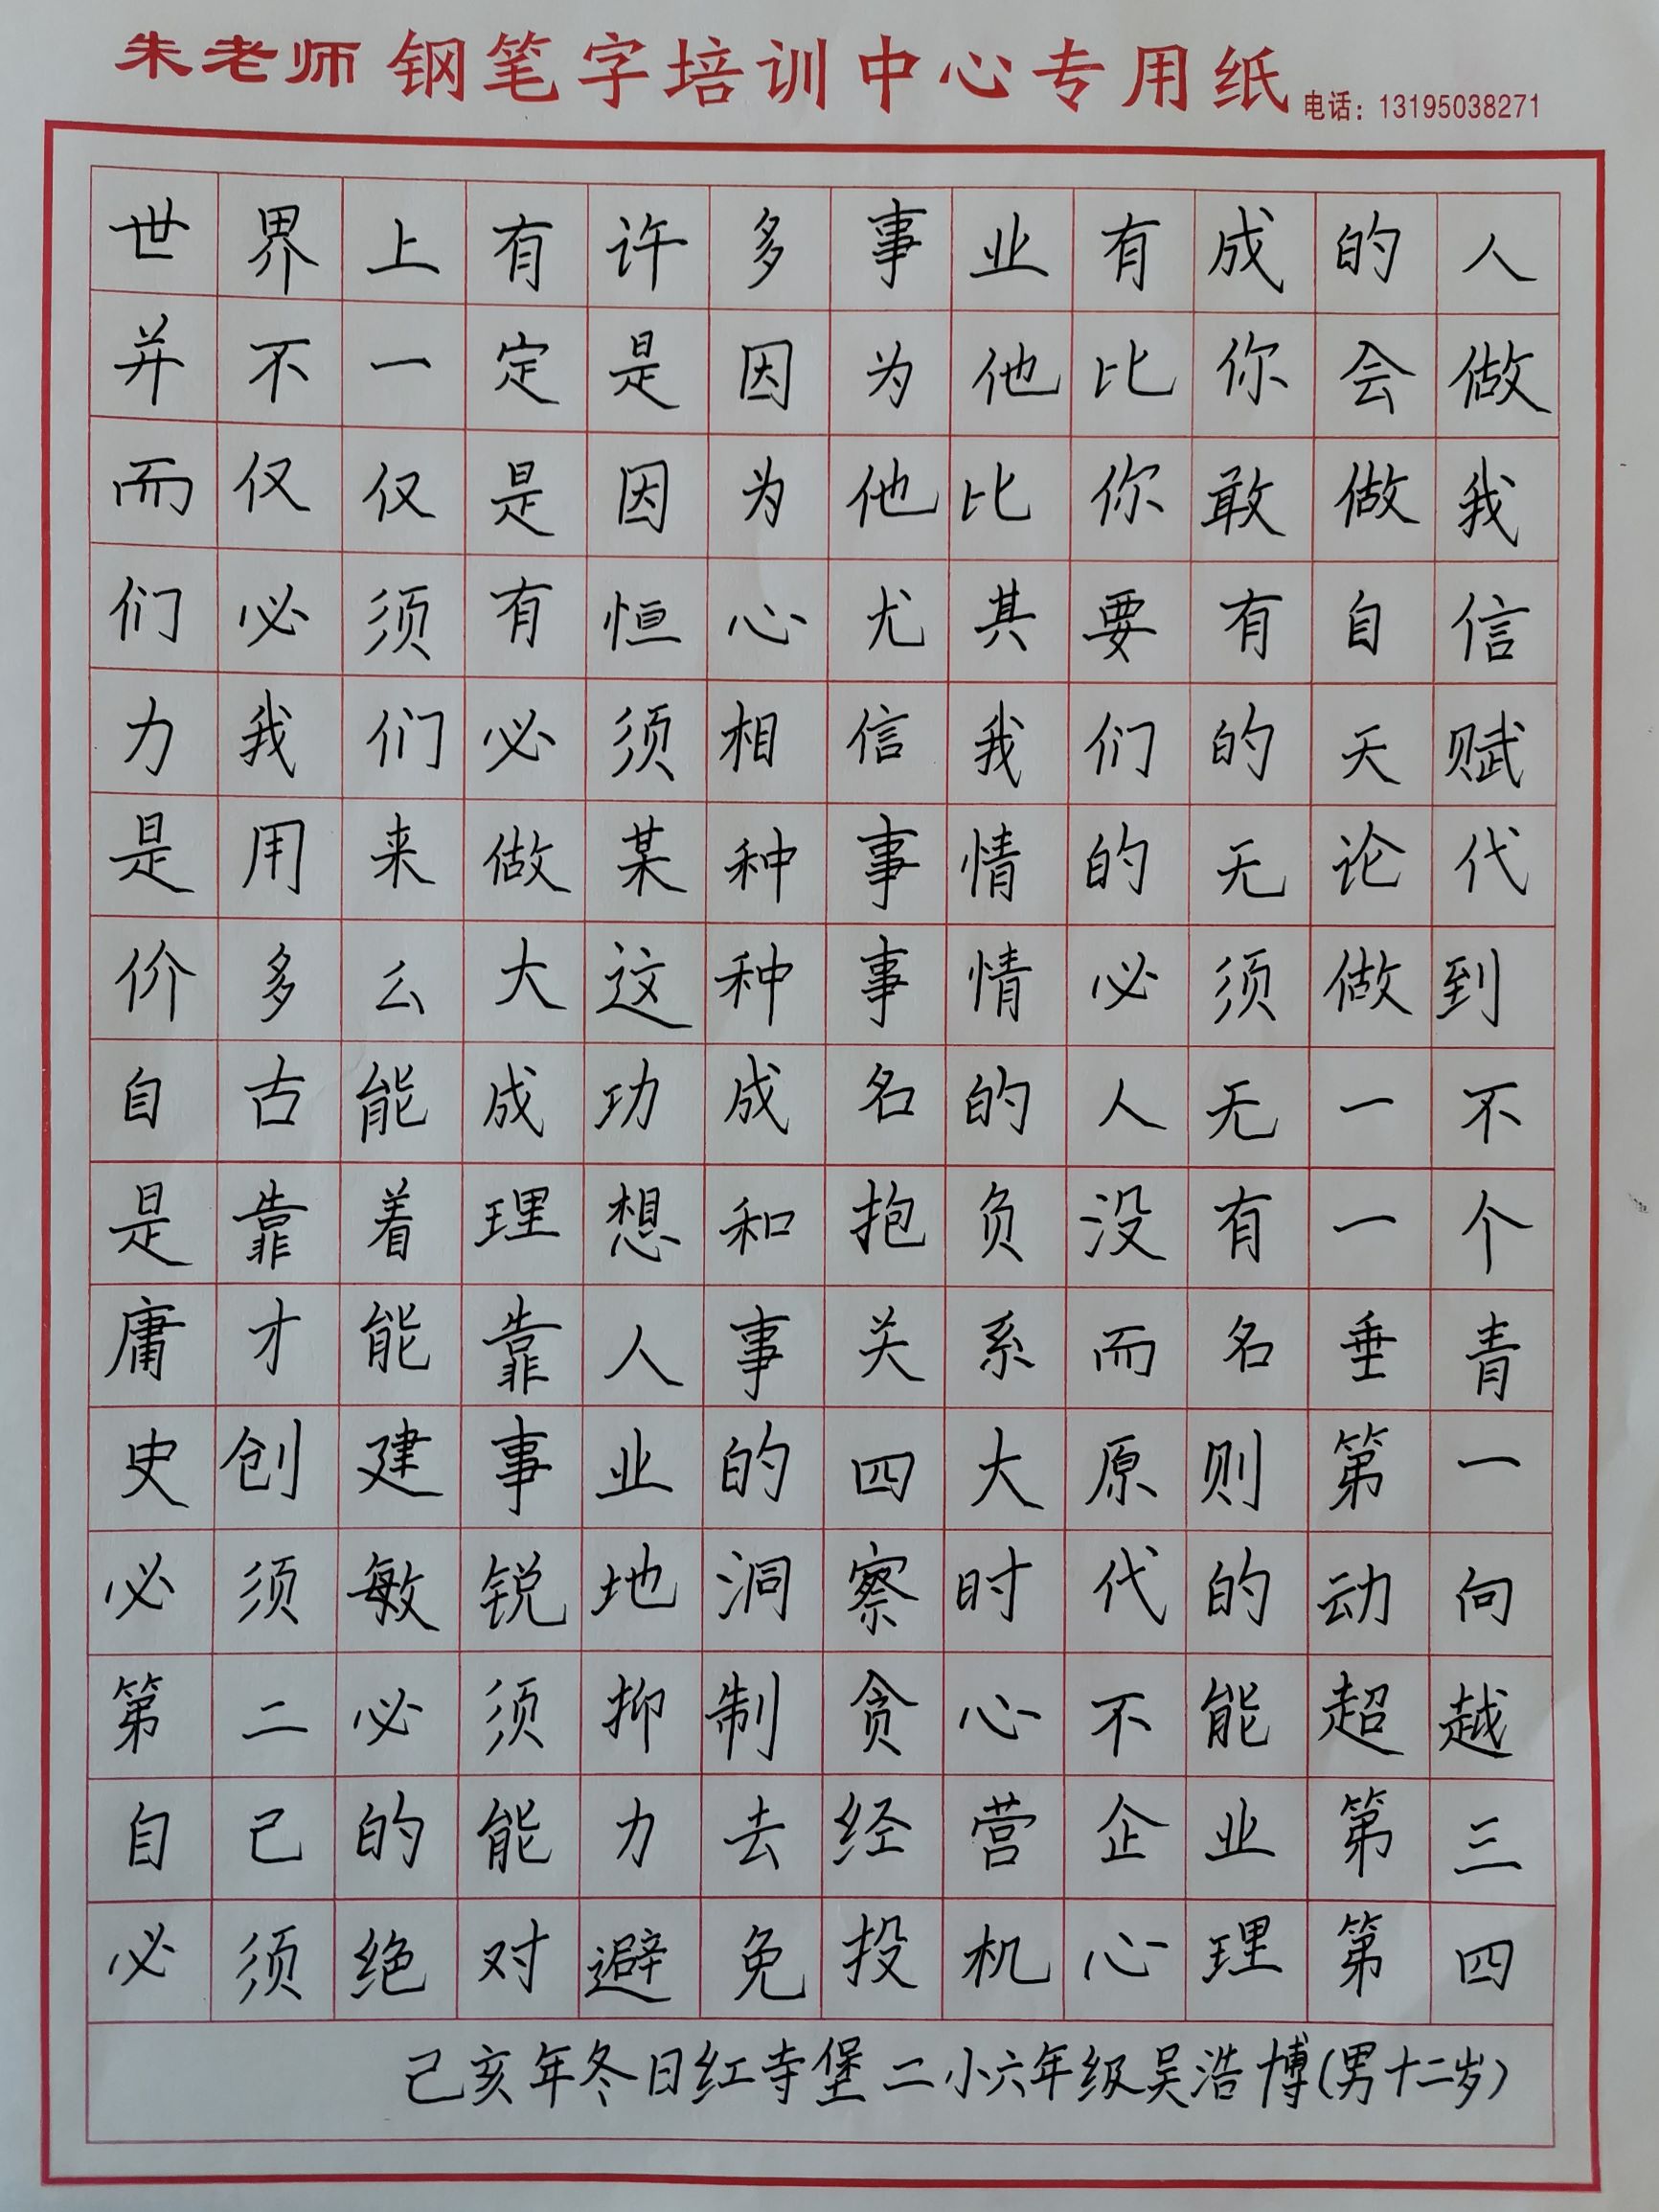 朱老师 钢笔字培训中心专用纸 电话：13195038271
世界上有许多事业有成的人
并不一定是因为他比你会做
而仅仅是因为他比你敢做我
们必须有恒心尤其要有自信
力我们必须相信我们的天赋
是用来做某种事情的无论代
价多么大这种事情必须做到
自古能成功成名的人无一不
是靠着理想和抱负没有一个
庸才能靠人事关系而名垂青
史创建事业的四大原则第一
必须敏锐地洞察时代的动向
第二必须抑制贪心不能超越
自己的能力去经营企业第三
必须绝对避免投机心理第四
己亥年冬日红寺堡二小六年级吴浩博（男十二岁）